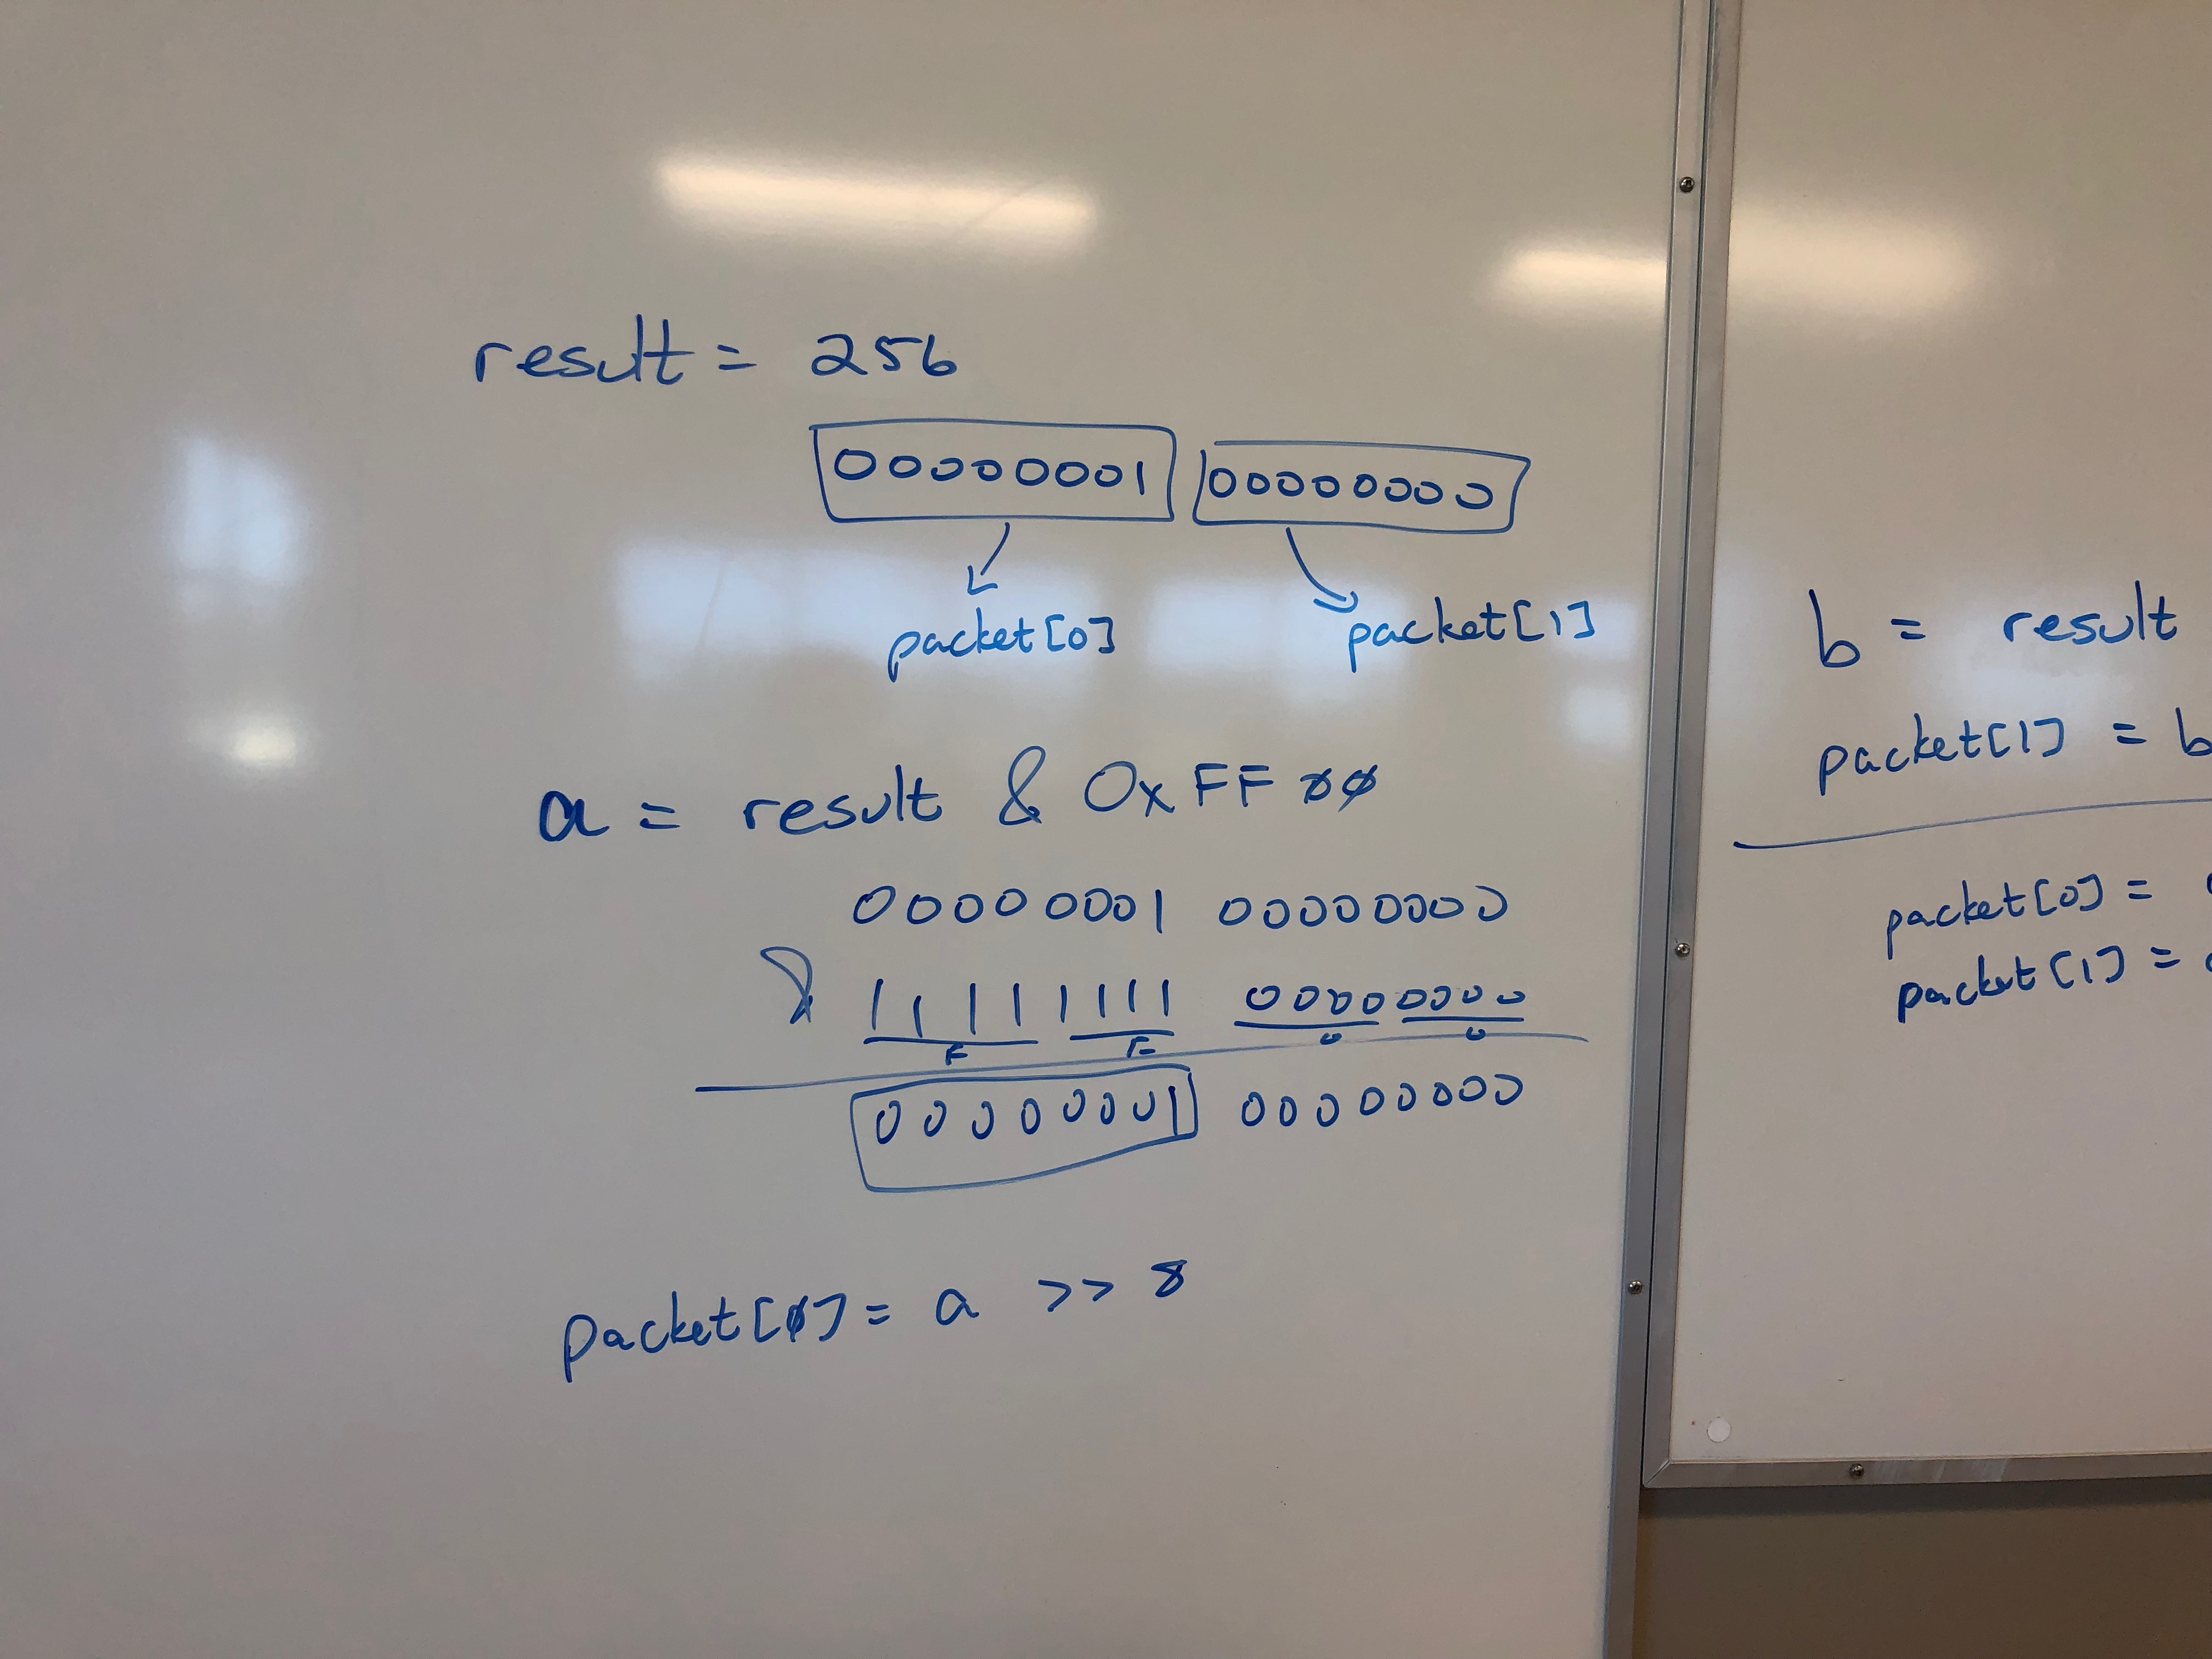 result = 256
00000001 00000000
packet[0] packet[1]
a = result & 0xFF00
00000001 00000000
& 11111111 00000000
F F 0 0
00000001 00000000
packet[0] = a >> 8
b = result
packet[1] = b
packet[0] =
packet[1] =